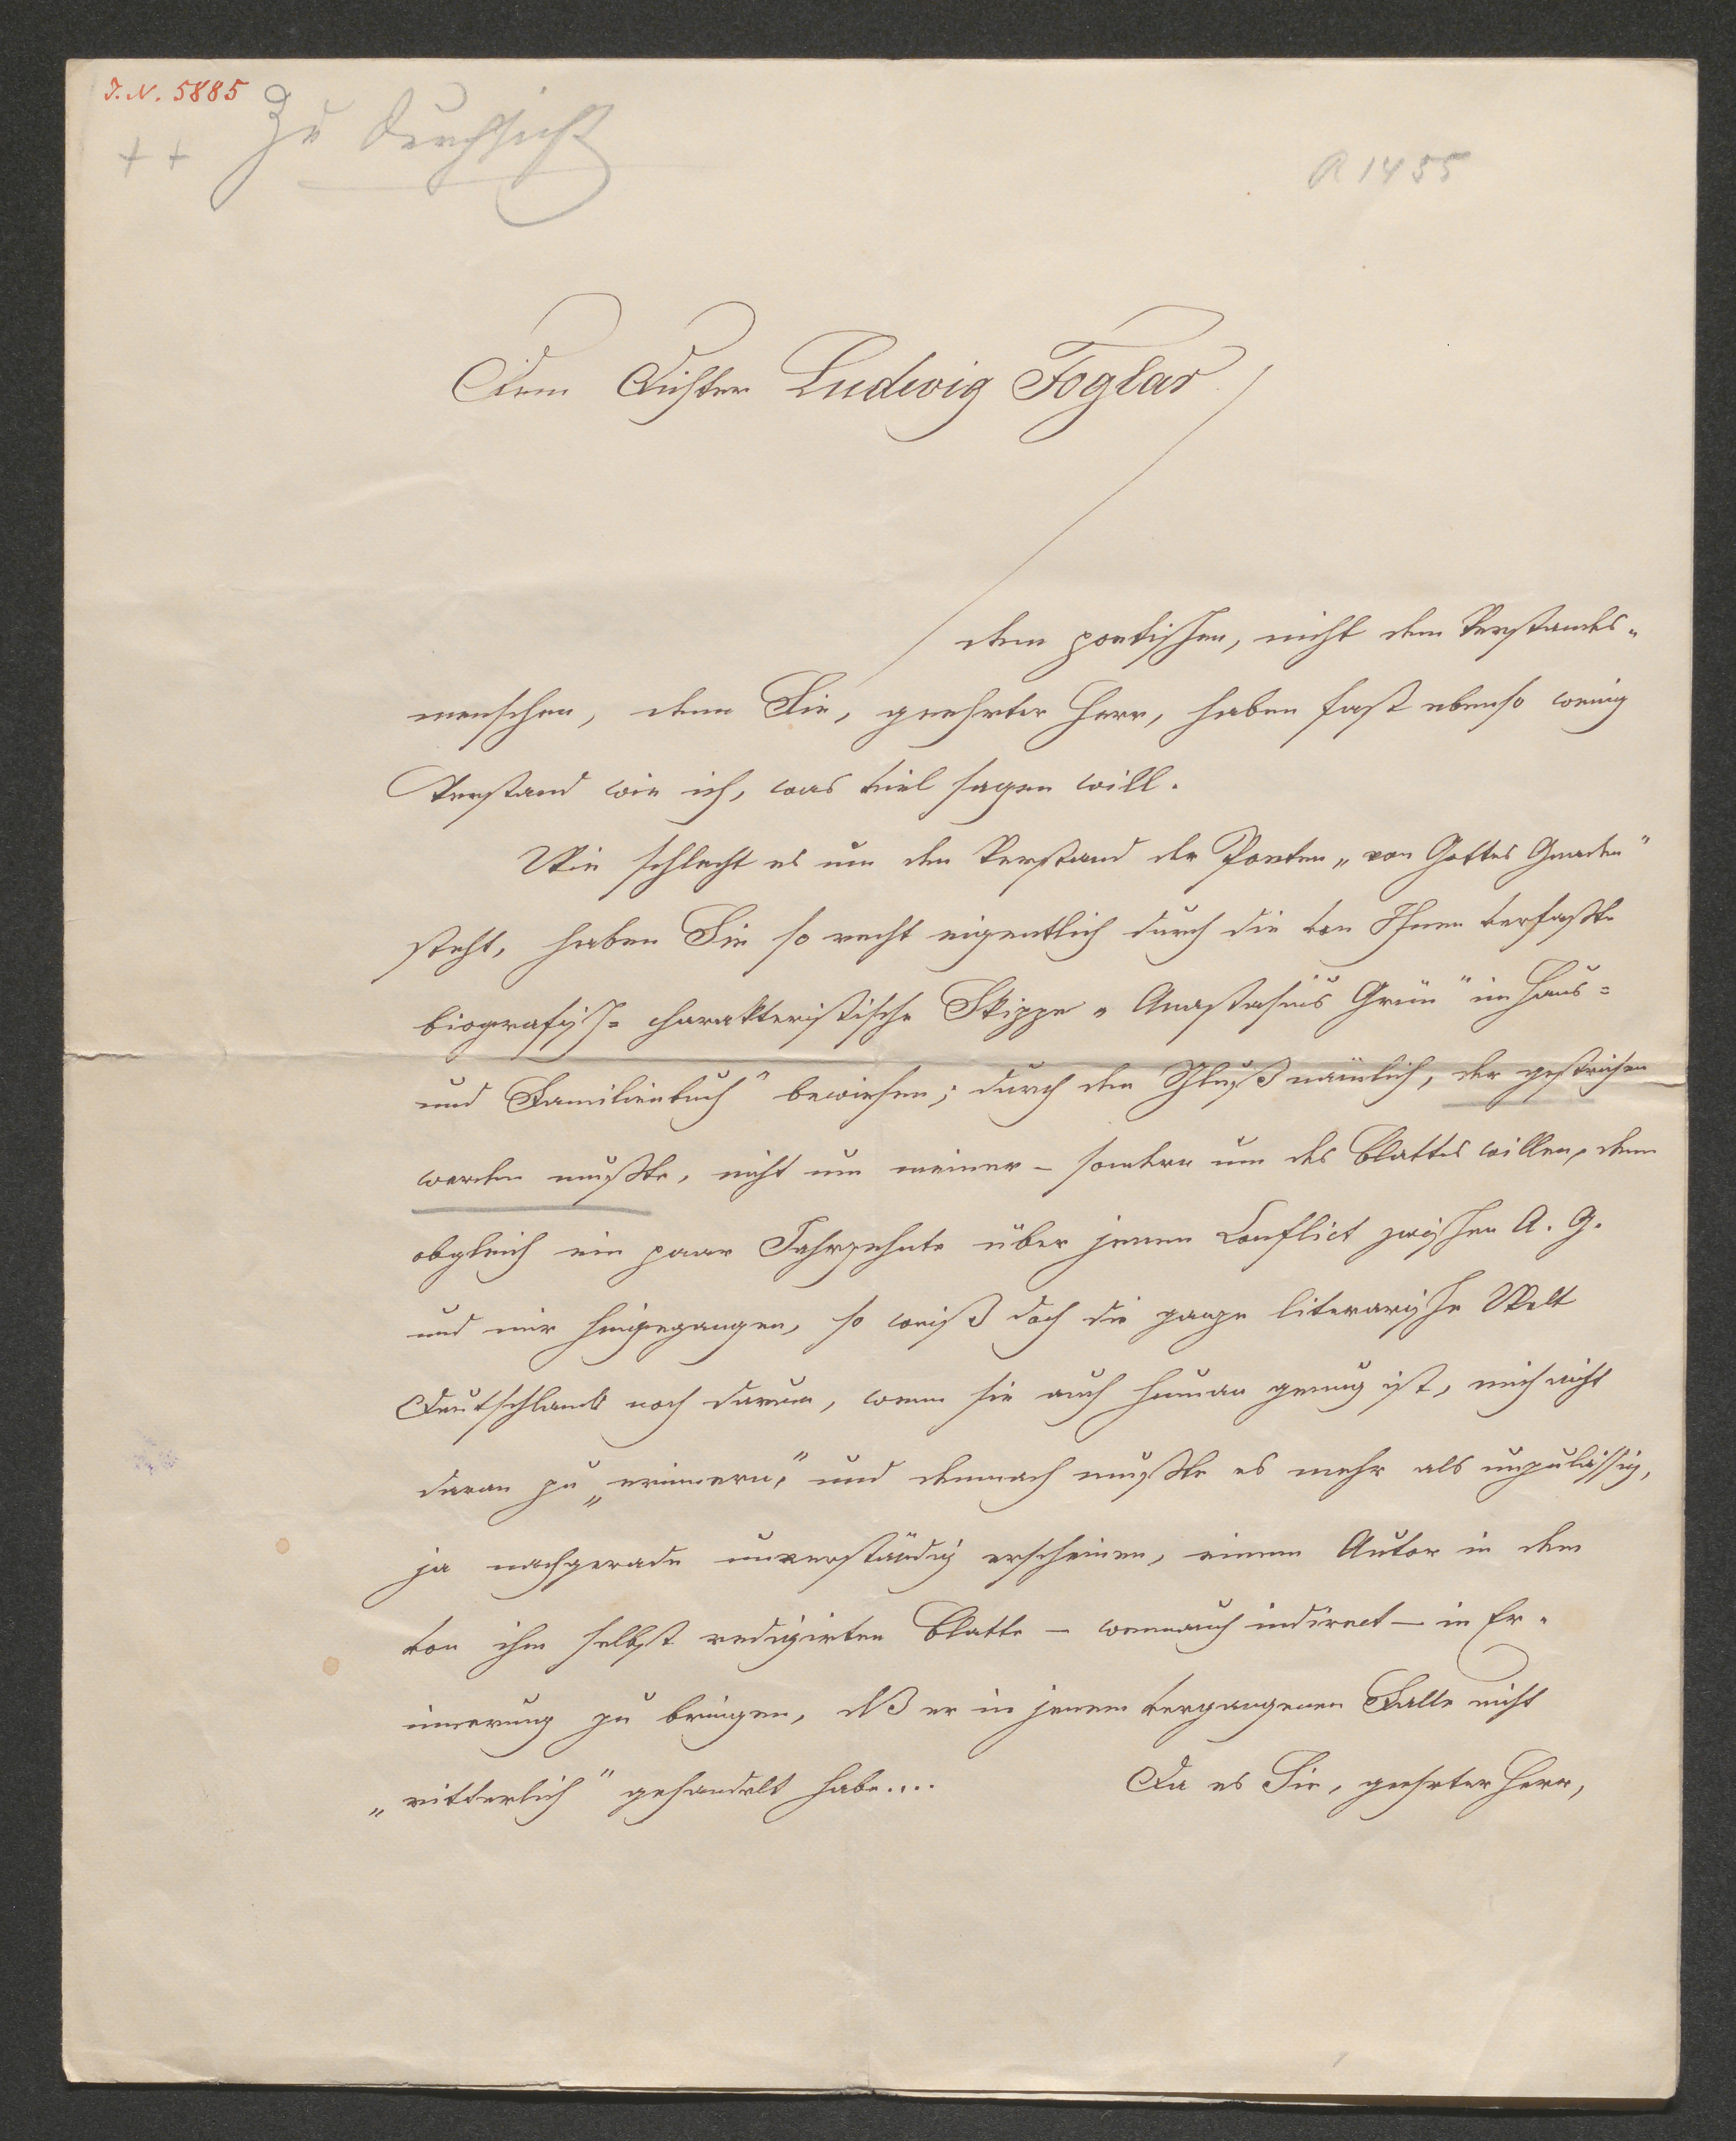 I.N. 5885
++ Zu Durchsicht
R 1455
Dem Dichter Ludwig Foglar
dem poetischen, nicht dem Verstandes-
menschen, denn Sie, geehrter Herr, haben fast ebenso wenig
Verstand wie ich, was viel sagen will.
Wie schlecht es um den Verstand der Poeten „von Gottes Gnaden"
steht, haben Sie so recht eigentlich durch die von Ihnen verfaßte
biografisch-charakteristische Skizze „Anastasius Grün" im Haus-
und Familienbuch" bewiesen; durch den Schluß nämlich, der gestrichen
werden mußte, nicht um meiner – sondern um des Blattes willen, denn
obgleich ein paar Jahrzehnte über jenen Conflict zwischen A. G.
und mir hingegangen, so weiß doch die ganze literarische Welt
Deutschlands noch darum, wenn sie auch human genug ist, mich nicht
daran zu „erinnern," und demnach mußte es mehr als unzulässig,
ja nachgerade unverständig erscheinen, einen Autor in dem
von ihm selbst redigirten Blatte – wennauch indirect – in Er-
innerung zu bringen, dß er in jenem vergangenen Falle nicht
„ritterlich" gehandelt habe.... Da es Sie, geehrter Herr,